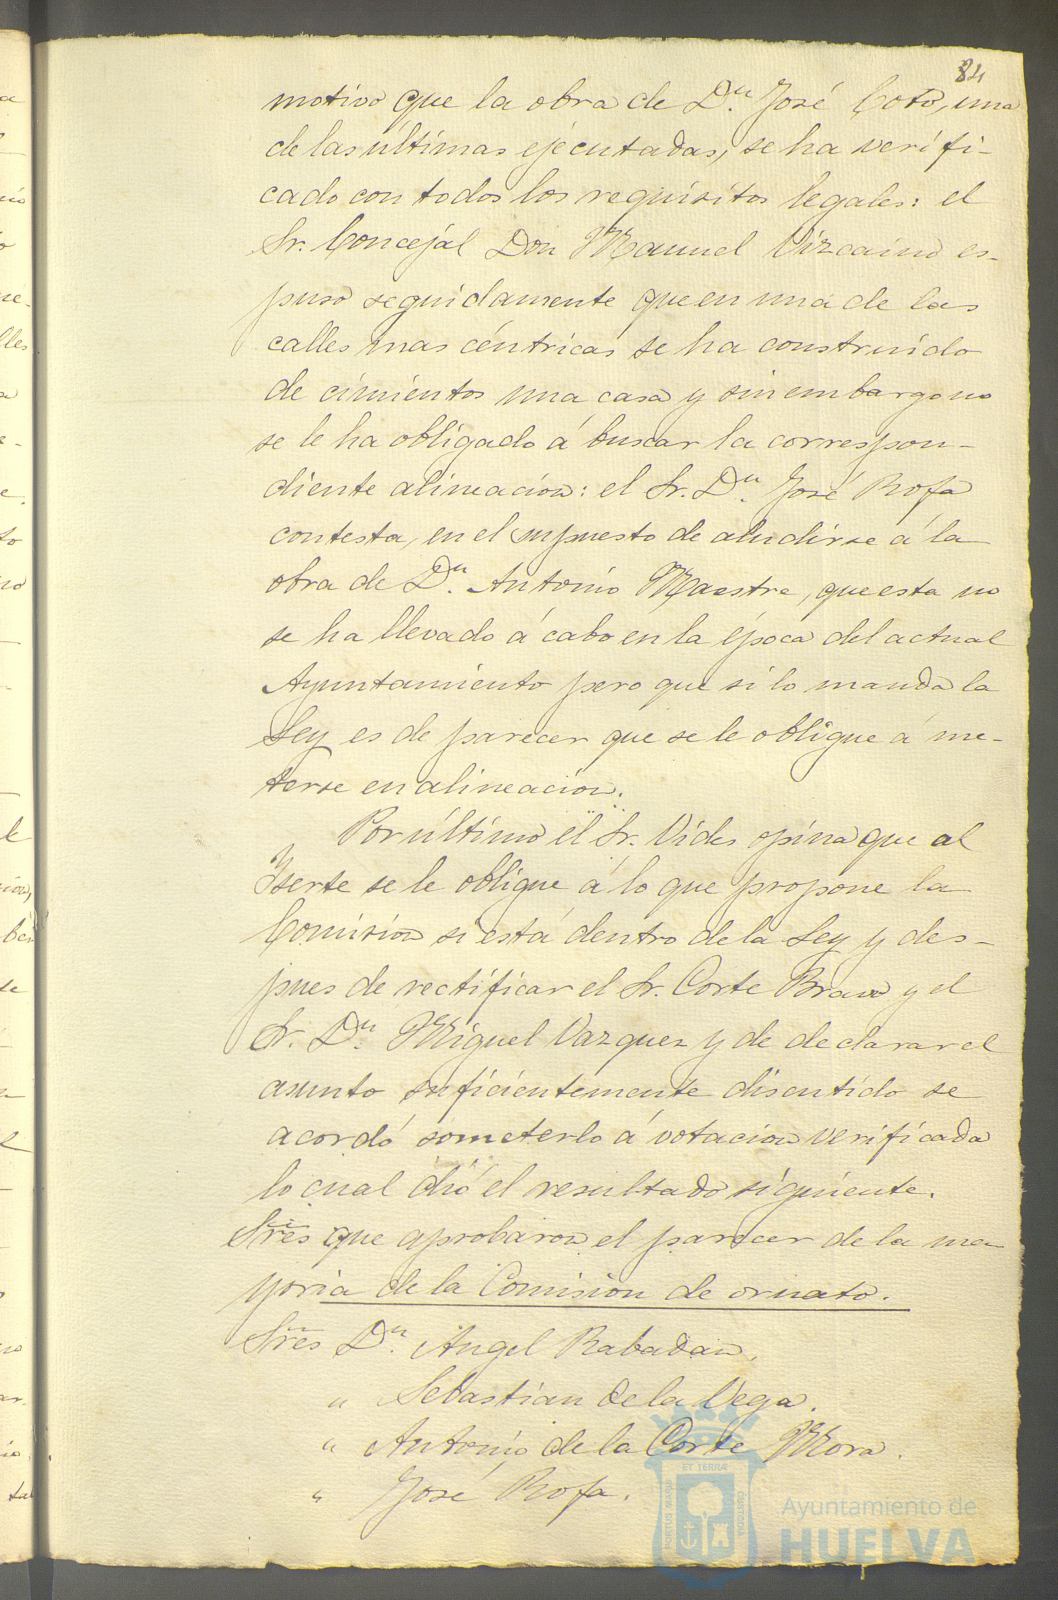 84
motivo que la obra de D.n José Coto, una
de las últimas ejecutadas, se ha verifi-
cado con todos los requisitos legales: el
Sr. Concejál Don Manuel Vizcaino es-
puso seguidamente que en una de las
calles mas céntricas se ha construido
de cimientos una casa y sin embargo no
se le ha obligado á buscar la correspon-
diente alineacion: el Sr. D.n José Rofa
contesta, en el supuesto de aludirse á la
obra de D.n Antonio Maestre, que esta no
se ha llevado á cabo en la época del actual
Ayuntamiento pero que si lo manda la
Ley es de parecer que se le obligue á me-
terse en alineacion.
Por último el Sr. Vides opina que al
Yserte se le obligue á lo que propone la
Comision si está dentro de la Ley y des-
pues de rectificar el Sr. Corte Bravo y el
Sr. D.n Miguel Vazquez y de declarar el
asunto suficientemente discutido se
acordó someterlo á votacion verificada
lo cual dió el resultado siguiente.
Sres que aprobaron el parecer de la ma
yoria de la Comision de ornato.
Sres D.n Angel Rabadan,
" Sebastian de la Vega.
" Antonio de la Corte Mora.
" José Rofa.
ET TERRÆ
PORTUS MARIS
CUSTODIA
Ayuntamiento de
HUELVA